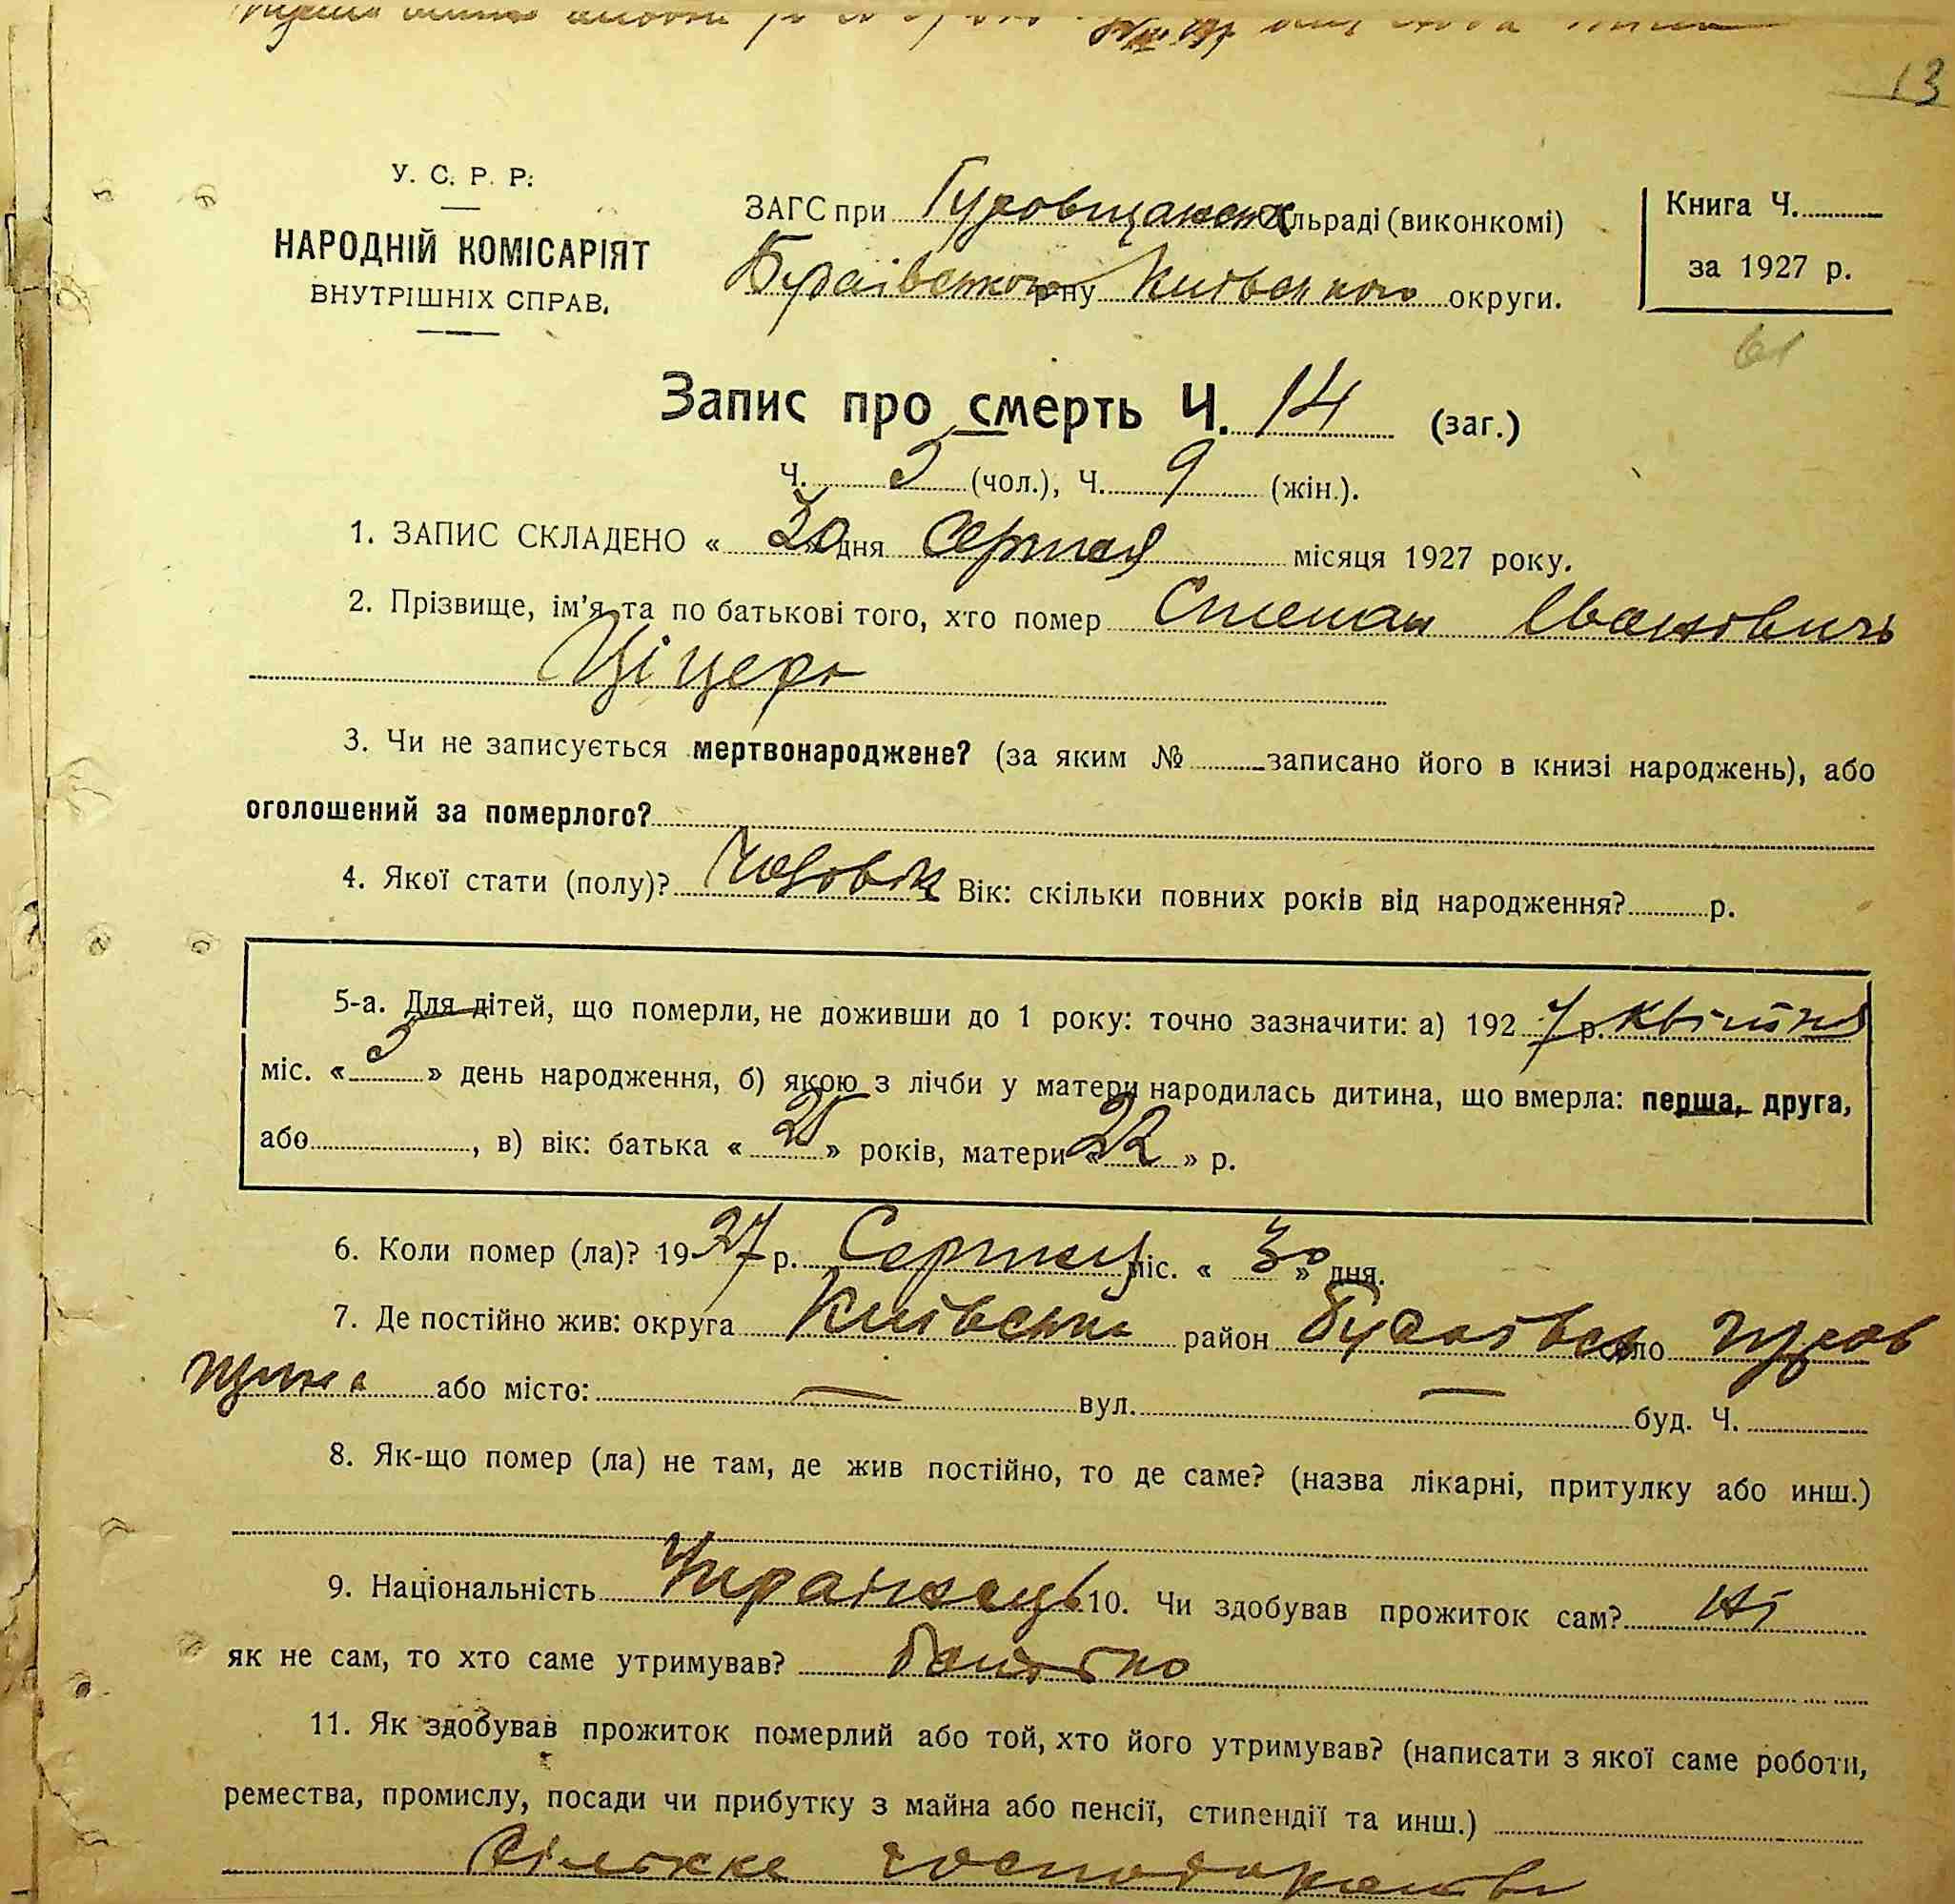 13
У. С. Р. Р.
НАРОДНІЙ КОМІСАРІЯТ
ВНУТРІШНІХ СПРАВ.
ЗАГС при Гуровщанськ сільраді (виконкомі)
Будаївського р-ну Київського округи.
Книга Ч.
за 1927 р.
61
Запис про смерть Ч. 14 (заг.)
Ч. 5 (чол.), Ч. 9 (жін.).
1. ЗАПИС СКЛАДЕНО « 30 » дня Серпня місяця 1927 року.
2. Прізвище, ім'я та по батькові того, хто помер Степан Іванович
Ціцера
3. Чи не записується мертвонароджене? (за яким № записано його в книзі народжень), або
оголошений за померлого?
4. Якої стати (полу)? Чоловік Вік: скільки повних років від народження? р.
5-а. Для дітей, що померли, не доживши до 1 року: точно зазначити: а) 192 7 р. квітня
міс. « 5 » день народження, б) якою з лічби у матери народилась дитина, що вмерла: перша, друга,
або , в) вік: батька « 25 » років, матери « 22 » р.
6. Коли помер (ла)? 1927 р. Серпня міс. « 30 » дня.
7. Де постійно жив: округа Київська район Будаївськ село Гуров
щина або місто: — вул. — буд. Ч.
8. Як-що помер (ла) не там, де жив постійно, то де саме? (назва лікарні, притулку або инш.)
9. Національність Українець 10. Чи здобував прожиток сам? Ні
як не сам, то хто саме утримував? батько
11. Як здобував прожиток померлий або той, хто його утримував? (написати з якої саме роботи,
ремества, промислу, посади чи прибутку з майна або пенсії, стипендії та инш.)
Сільське господарство